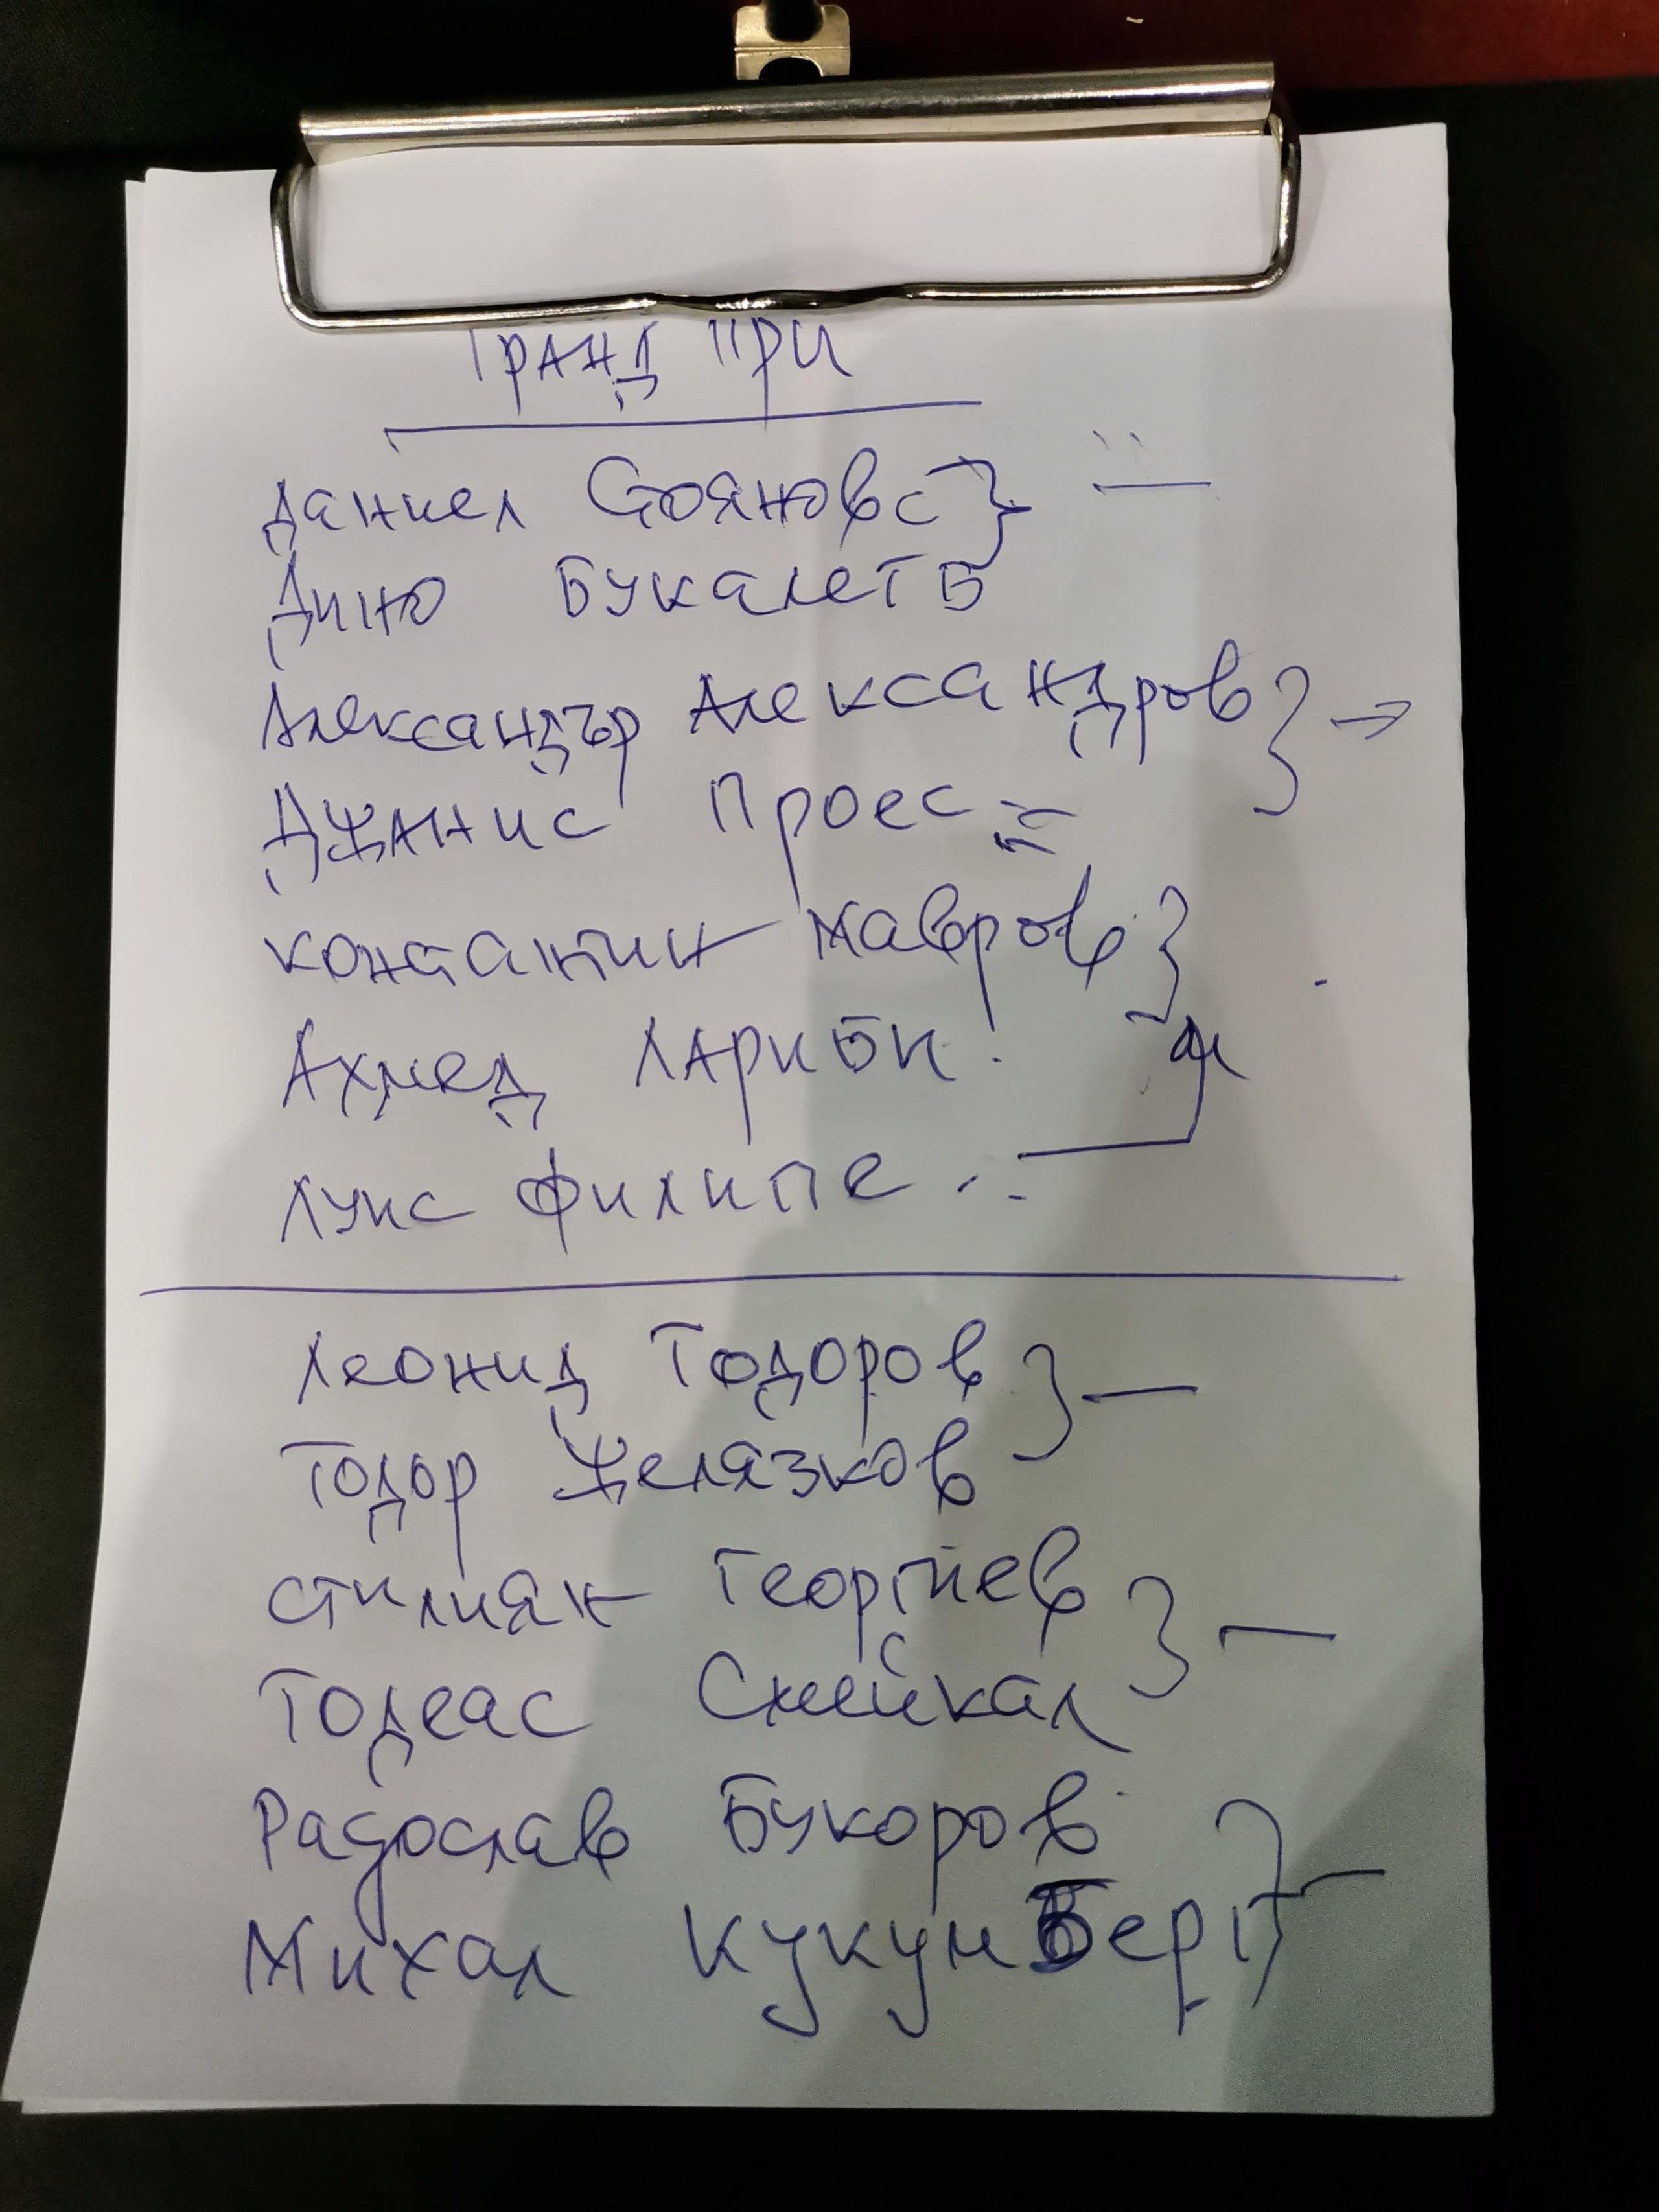 ГРАНД ПРИ
Даниел Стояновс
Дино БУКАЛЕТБ
Александър Александров
ДЖАНИС Проес
Констатин Мавров
Ахмед ЛАРИБИ
Луис Филипе
Леонид Тодоров
Тодор Желязков
Стилиян Георгиев
Тодеас Смейкал
Радослав Букоров
Михал КукунБерг